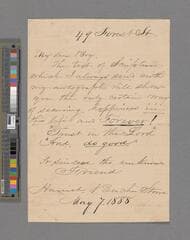 49 Forest St.
My Dear Boy
The text of Scripture
which I always send with
my autograph will show
you the only certain way
of securing happiness in
this life and Forever!
"Trust in the Lord
And do good"
Sincerely
Friend
Harriet Beecher Stowe
May 7. 1888